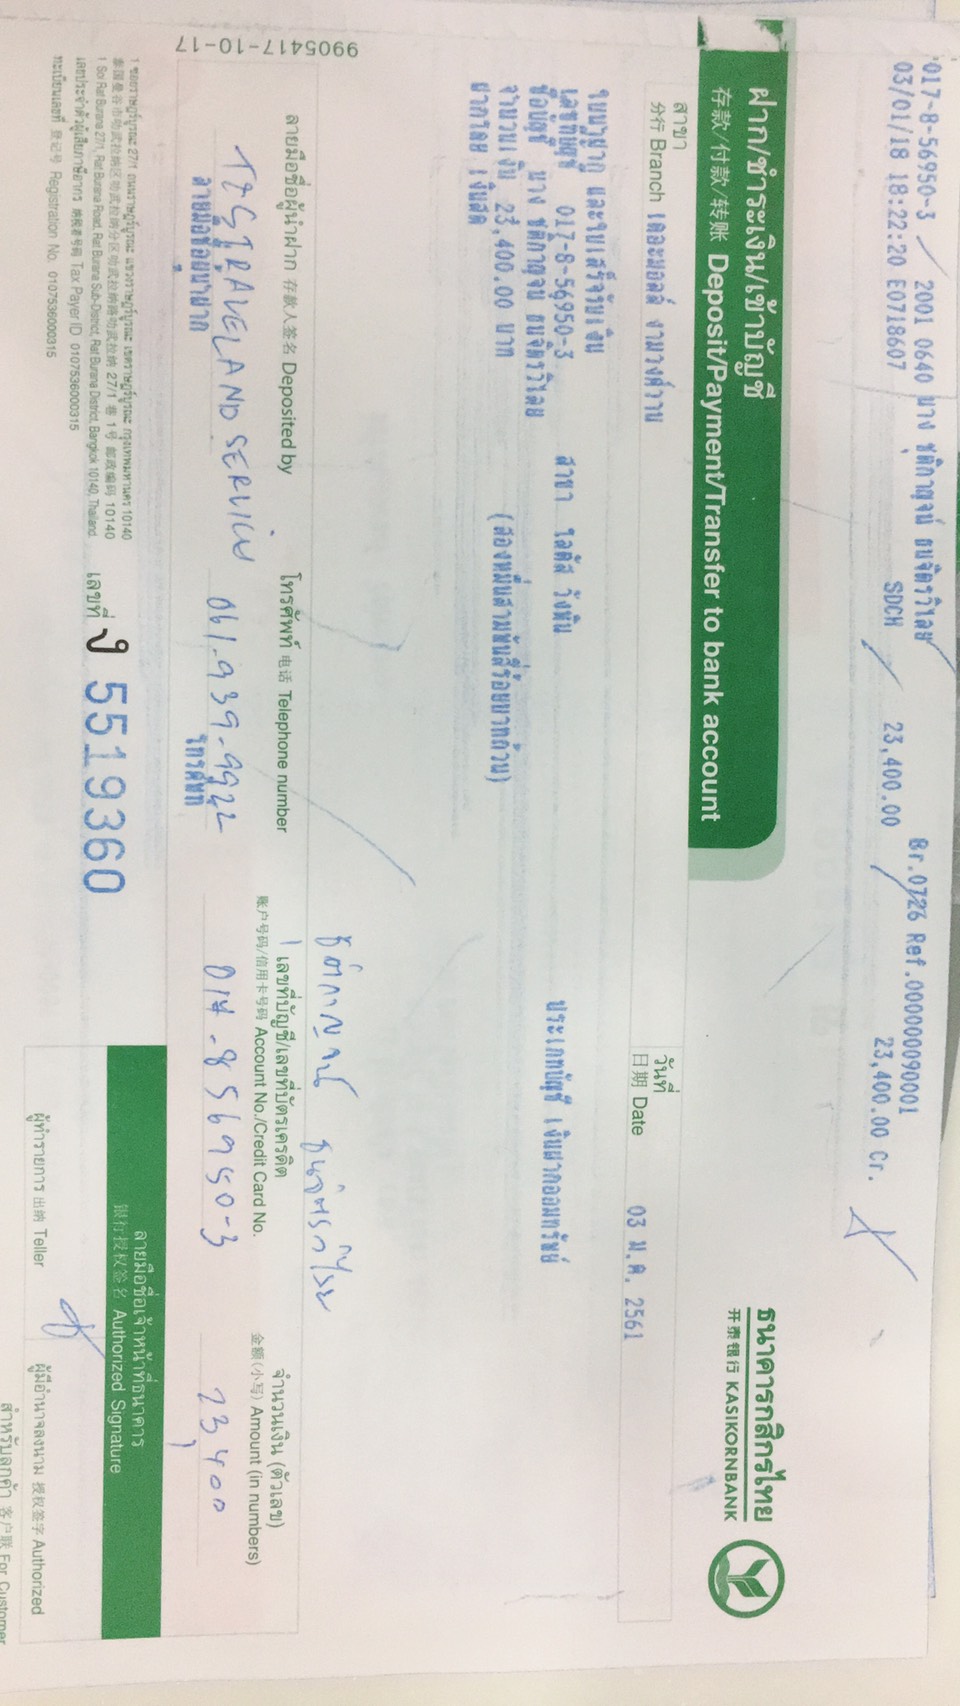 017-8-56950-3 2001 0640 นาง ชุติกาญจน์ ธนจิตรวิไลย Br.0726 Ref.000000090001
03/01/18 18:22:20 E0718607 SDCH 23,400.00 23,400.00 Cr.
ฝาก/ชำระเงิน/เข้าบัญชี
存款/付款/转账 Deposit/Payment/Transfer to bank account
ธนาคารกสิกรไทย
开泰银行 KASIKORNBANK
สาขา
分行 Branch เดอะมอลล์ งามวงศ์วาน
วันที่
日期 Date 03 ม.ค. 2561
ใบนำฝาก และใบเสร็จรับเงิน
เลขที่บัญชี 017-8-56950-3 สาขา โลตัส วังหิน ประเภทบัญชี เงินฝากออมทรัพย์
ชื่อบัญชี นาง ชุติกาญจน์ ธนจิตรวิไลย
จำนวนเงิน 23,400.00 บาท (สองหมื่นสามพันสี่ร้อยบาทถ้วน)
ฝากโดย เงินสด
ชุติกาญจน์ ธนจิตรวิไลย
ลายมือชื่อผู้นำฝาก 存款人签名 Deposited by
โทรศัพท์ 电话 Telephone number
เลขที่บัญชี/เลขที่บัตรเครดิต
账户号码/信用卡号码 Account No./Credit Card No.
จำนวนเงิน (ตัวเลข)
金额(小写) Amount (in numbers)
T&S TRAVELAND SERVICE 061-939-9922 017-856950-3 23,400
ลายมือชื่อผู้นำฝาก โทรศัพท์
9905417-10-17
1 ซอยราษฎร์บูรณะ 27/1 ถนนราษฎร์บูรณะ แขวงราษฎร์บูรณะ เขตราษฎร์บูรณะ กรุงเทพมหานคร 10140
泰国曼谷市叻武拉纳区叻武拉纳分区叻武拉纳路叻武拉纳 27/1 巷 1号 邮政编码 10140
1 Soi Rat Burana 27/1, Rat Burana Road, Rat Burana Sub-District, Rat Burana District, Bangkok 10140, Thailand.
เลขประจำตัวผู้เสียภาษีอากร 纳税者号码 Tax Payer ID 0107536000315
ทะเบียนเลขที่ 登记号 Registration No. 0107536000315
เลขที่ ง 5519360
ลายมือชื่อเจ้าหน้าที่ธนาคาร
银行授权签名 Authorized Signature
ผู้ทำรายการ 出纳 Teller
ผู้มีอำนาจลงนาม 授权签字 Authorized
สำหรับลูกค้า 客户联 For Customer